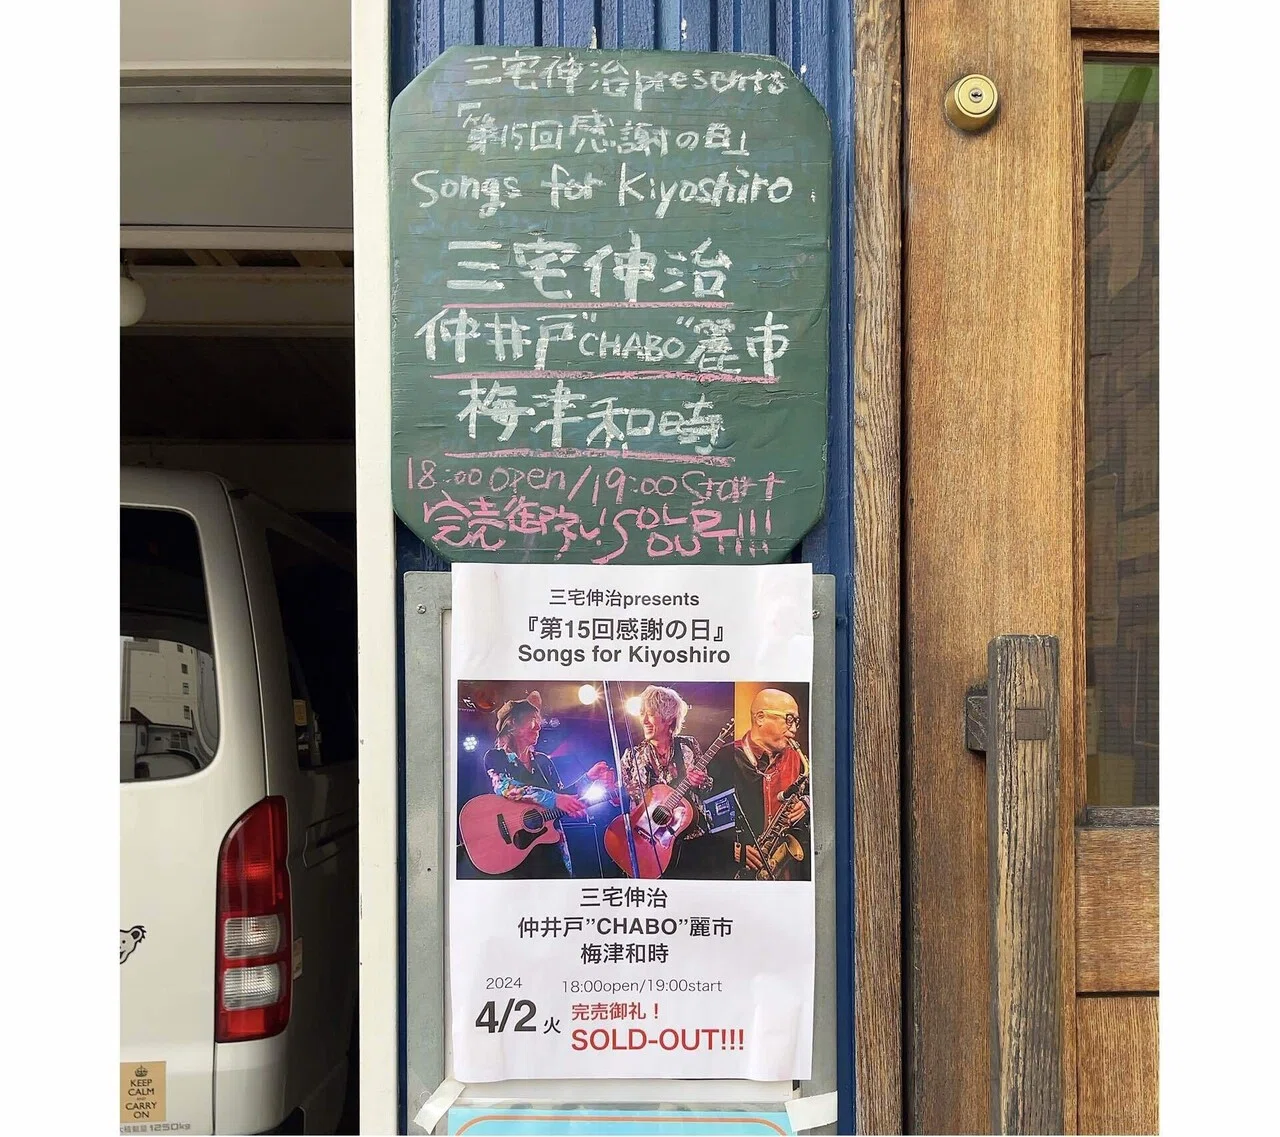 三宅伸治presents
「第15回感謝の日」
Songs for Kiyoshiro
三宅伸治
仲井戸"CHABO"麗市
梅津和時
18:00 open/19:00 Start
完売御礼! SOLD OUT!!!
三宅伸治presents
『第15回感謝の日』
Songs for Kiyoshiro
三宅伸治
仲井戸”CHABO”麗市
梅津和時
2024
18:00open/19:00start
4/2 火
完売御礼！
SOLD-OUT!!!
KEEP
CALM
AND
CARRY
ON
積載量 1250kg